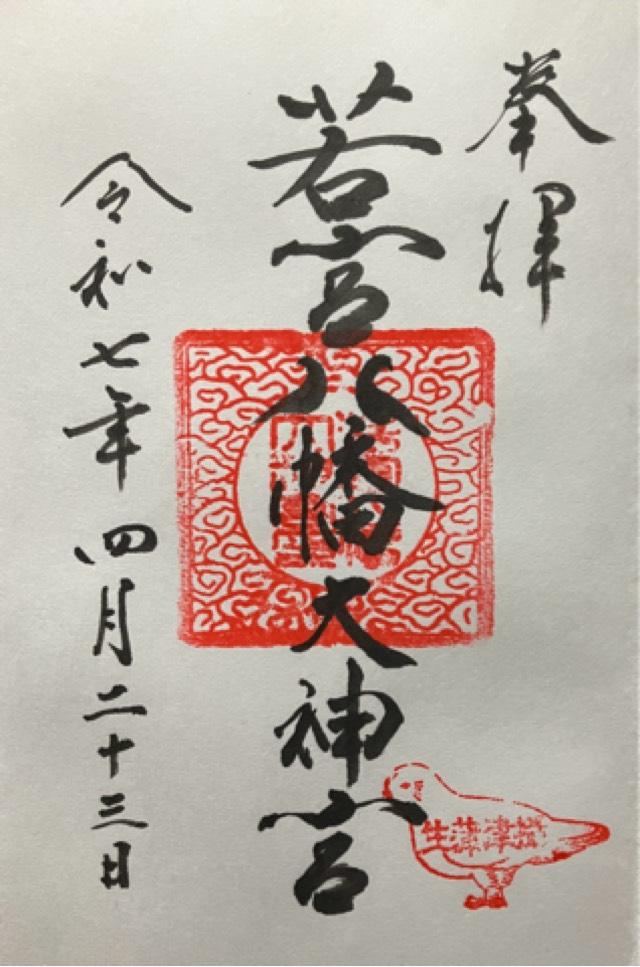 奉拝
若宮八幡大神宮
令和七年四月二十三日
摂津蒲生